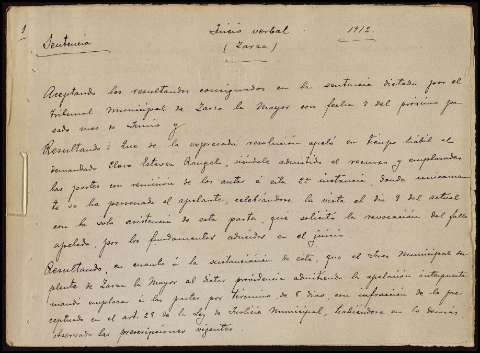 1
Juicio verbal 1912.
Sentencia
(Zarza)
Aceptando los resultandos consignados en la sentencia dictada por el
tribunal municipal de Zarza la Mayor con fecha 7 del próximo pa-
sado mes de Junio y
Resultando: Que de la expresada resolución apeló en tiempo hábil el
demandado Claro Estevan Rangel, siéndole admitido el recurso y emplazandos
las partes con remisión de los autos á esta 2ª instancia, donde unicamen-
te se ha personado el apelante, celebrándose la vista el dia 9 del actual
con la sola asistencia de esta parte, que solicitó la revocación del fallo
apelado, por los fundamentos aducidos en el juicio
Resultando, en cuanto á la sustanciación de esta, que el Juez municipal su-
plente de Zarza la Mayor al dictar providencia admitiendo la apelación
mandó emplazar á las partes por término de 8 dias, con infracción de lo pre-
ceptuado en el art. 28 de la Ley de Justicia Municipal, habiéndose en lo demás
observado las prescripciones vigentes.